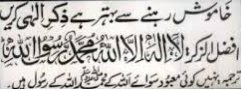 خاموش رہنے سے بہتر ہے ذکرِ الٰہی کریں
افضل الذکر لَا اِلٰهَ اِلَّا اللهُ مُحَمَّدٌ رَّسُوْلُ اللهِ
ترجمہ: نہیں کوئی معبود سوائے اللہ کے محمدﷺ اللہ کے رسول ہیں۔